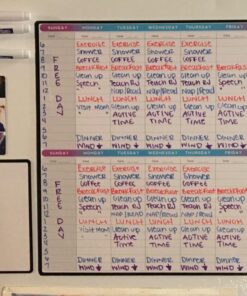 SUNDAY MONDAY TUESDAY WEDNESDAY THURSDAY FRIDAY
Exercise Exercise Exercise Exercise Exercise
Shower Shower Shower Shower Shower
COFFEE COFFEE COFFEE COFFEE COFFEE
F Breakfast Breakfast Breakfast Breakfast Breakfast
R Clean up Clean up Clean up Clean up Clean up
E Speech Teach RJ Speech Teach RJ Speech
E Nap/Read Nap/Read
D LUNCH LUNCH LUNCH LUNCH LUNCH
A Clean up Clean up Clean up Clean up
Y ACTIVE ACTIVE ACTIVE
TIME TIME TIME
DINNER DINNER DINNER DINNER DINNER
WIND ↓ WIND ↓ WIND ↓ WIND ↓ WIND ↓
SUNDAY MONDAY TUESDAY WEDNESDAY THURSDAY FRIDAY
Exercise Exercise Exercise Exercise Exercise
Shower Shower Shower Shower Shower
F COFFEE COFFEE COFFEE COFFEE COFFEE
R Breakfast Breakfast Breakfast Breakfast Breakfast
E Clean up Clean up Clean up Clean up Clean up
E Speech Teach RJ Speech Teach RJ Speech
D LUNCH LUNCH LUNCH LUNCH LUNCH
A Clean up Clean up Clean up Clean up
Y Active ACTIVE ACTIVE
Time TIME TIME
DINNER DINNER DINNER DINNER DINNER
WIND ↓ WIND ↓ WIND ↓ WIND ↓ WIND ↓